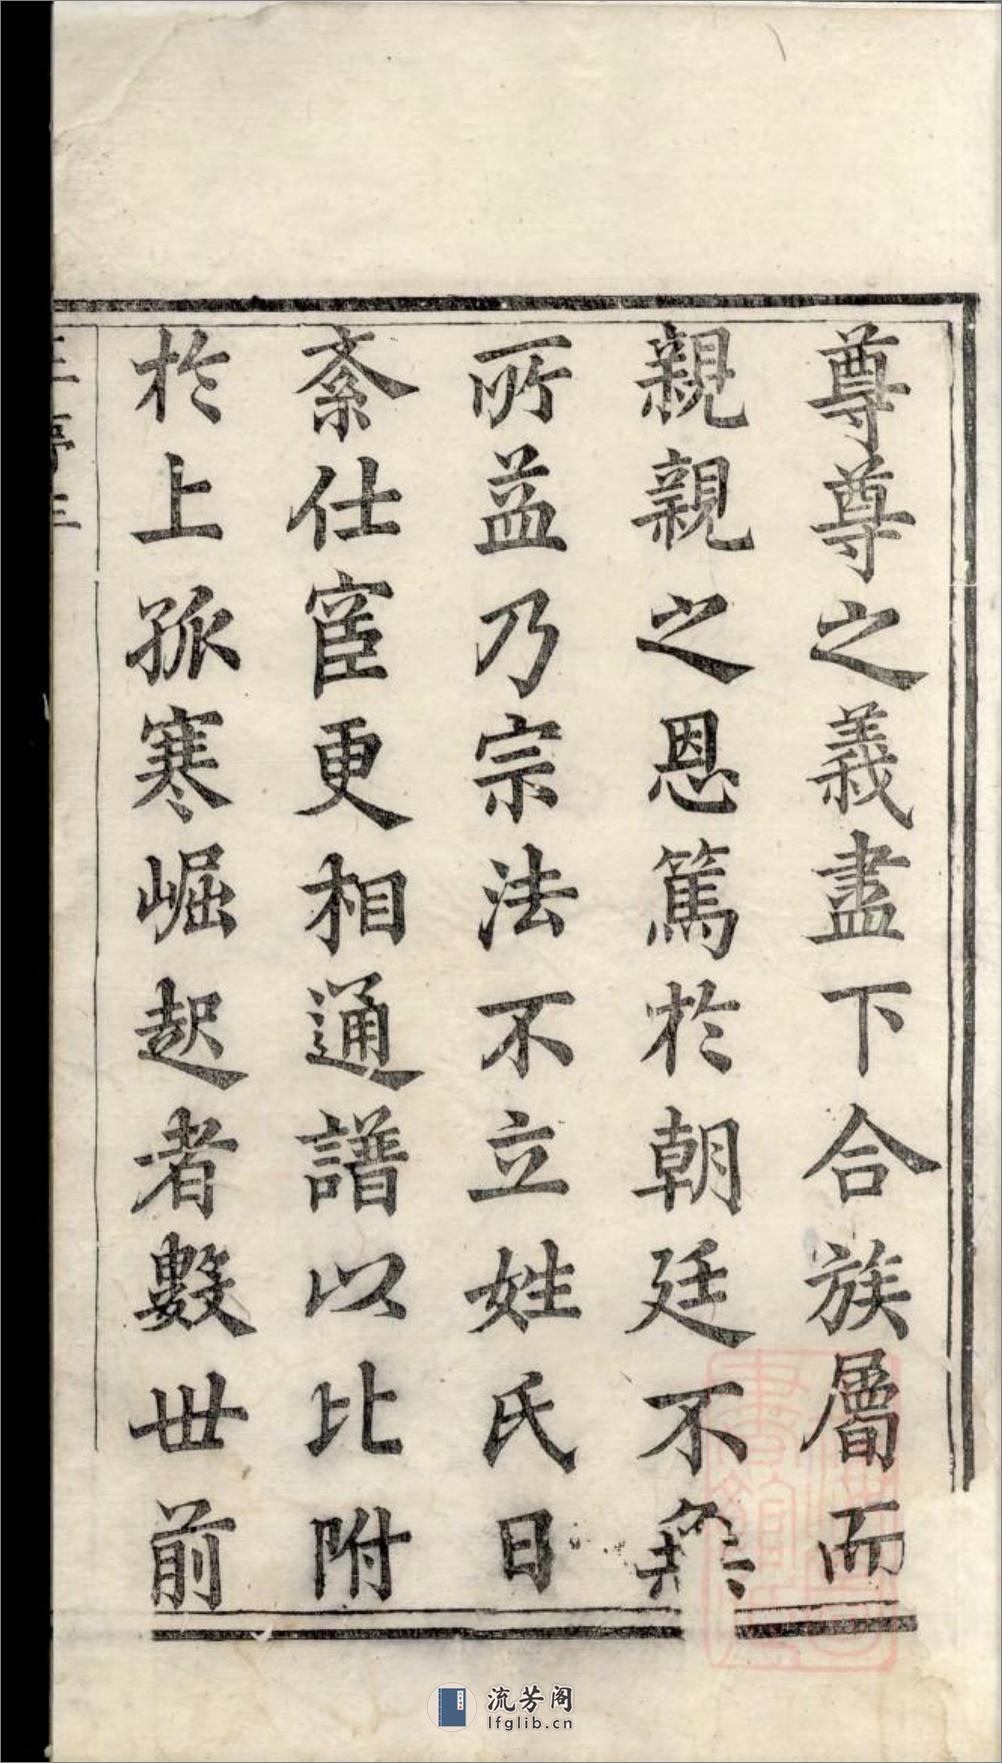 尊尊之義盡下合族屬而
親親之恩篤於朝廷不無
所益乃宗法不立姓氏日
紊仕宦更相通譜以比附
於上孤寒崛起者數世前
流芳阁
lfglib.cn